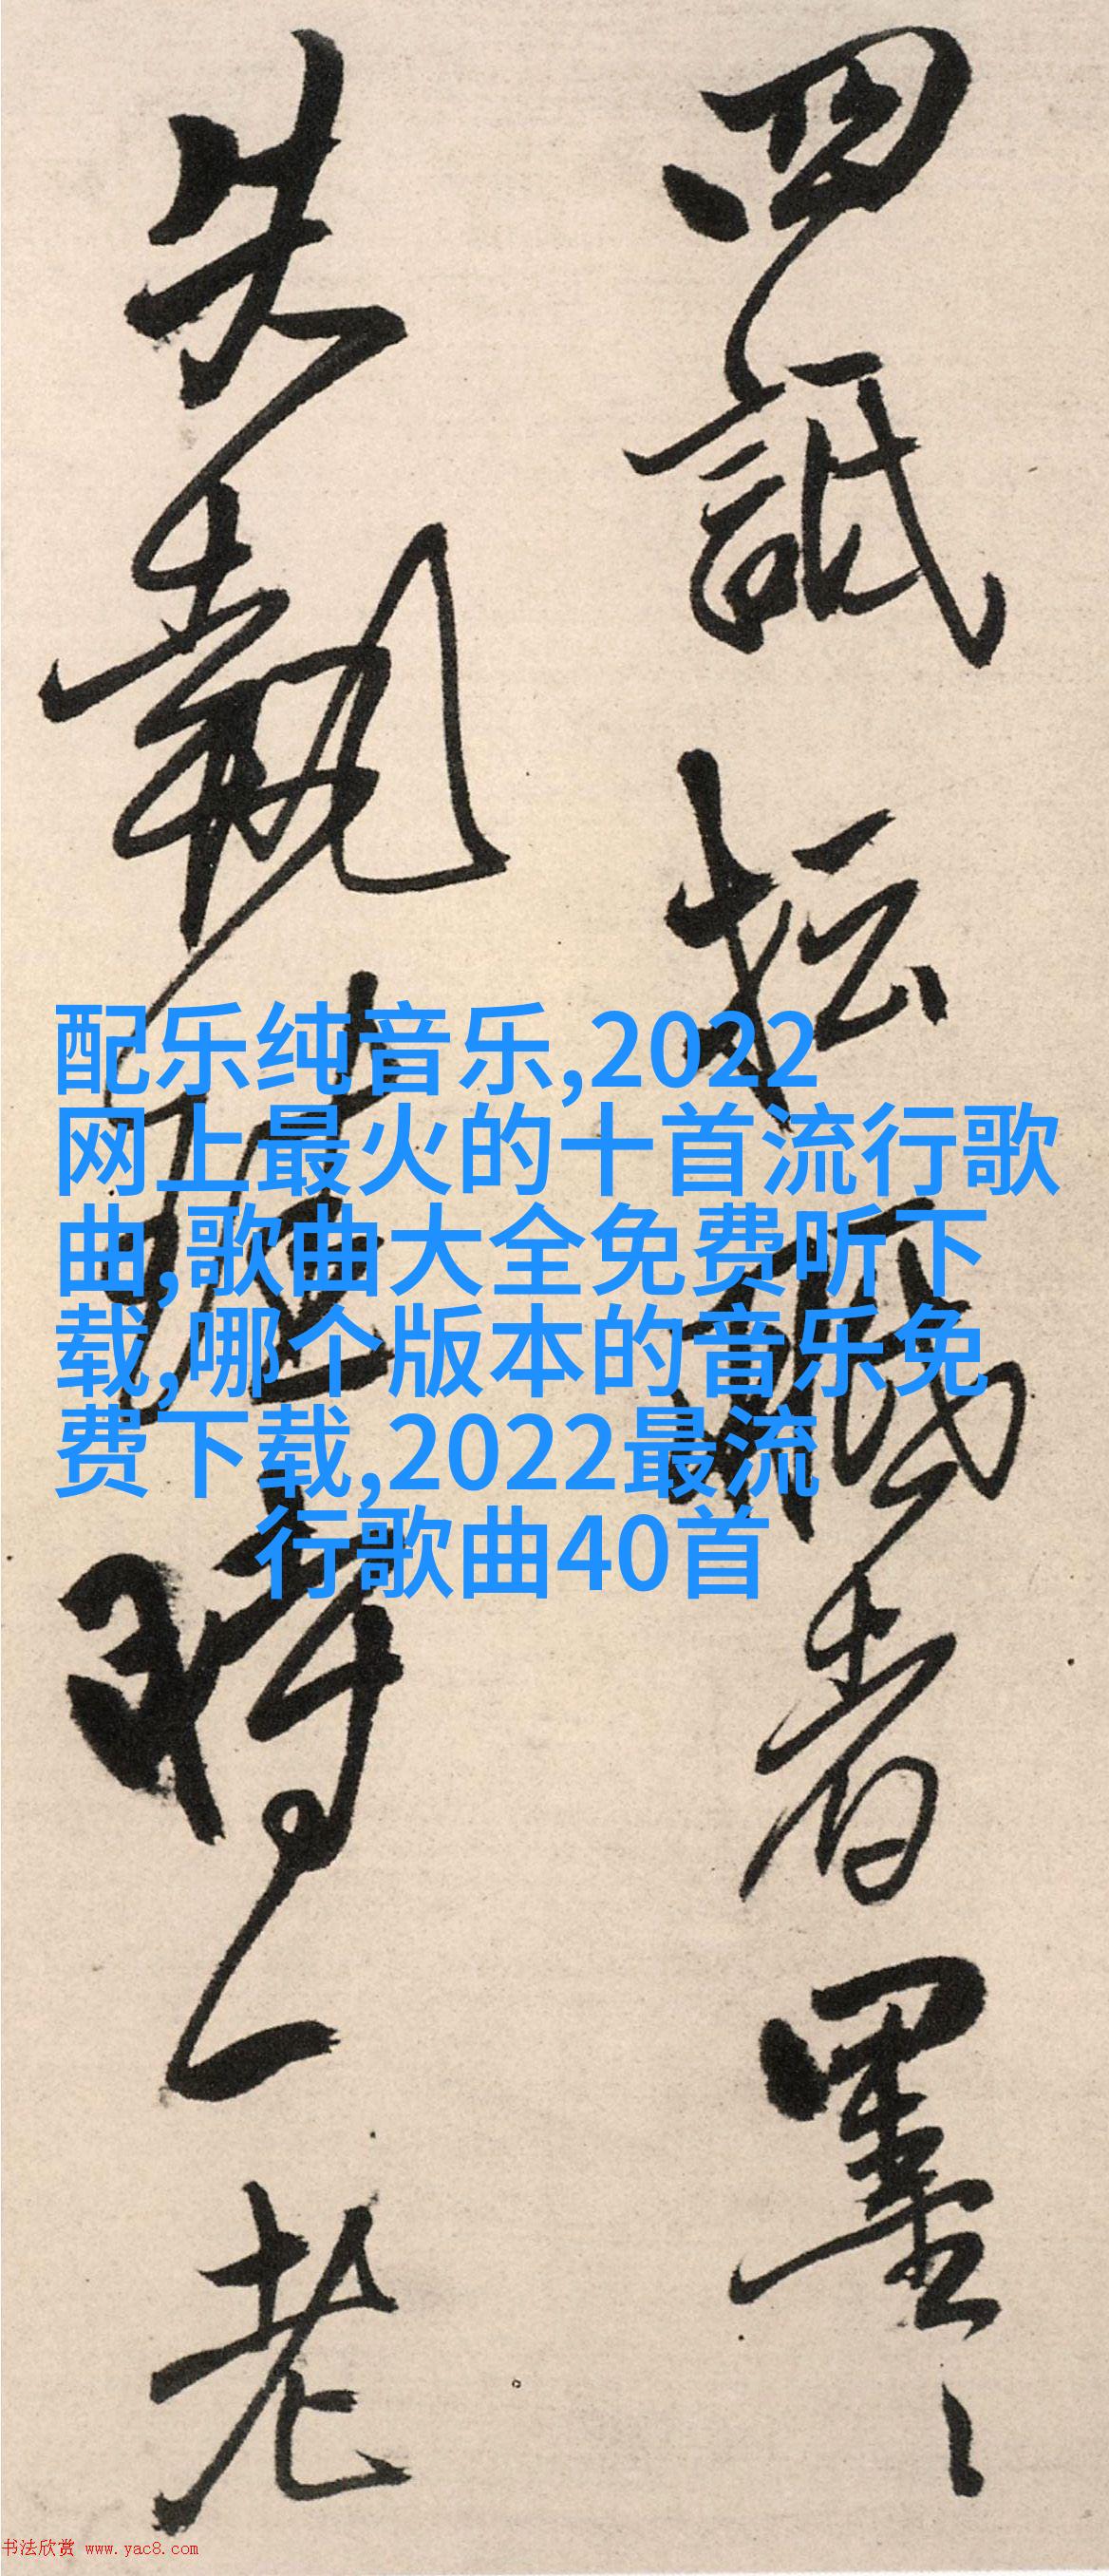 四詆者墨
失執時老
配乐纯音乐,2022
网上最火的十首流行歌
曲,歌曲大全免费听下
载,哪个版本的音乐免
费下载,2022最流
行歌曲40首
书法欣赏 www.yac8.com